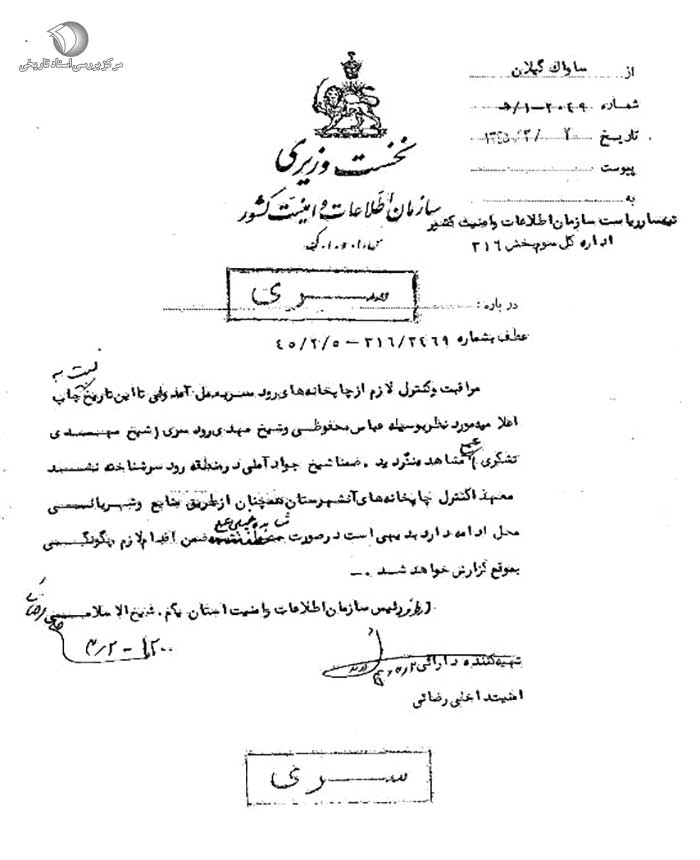 مرکز بررسی اسناد تاریخی
از ساواک گیلان
شماره ۲۰۴۹-۱/ه
تاریخ ۲ /۳/ ۱۳۴۵
پیوست
به
تیمسار ریاست سازمان اطلاعات و امنیت کشور
اداره کل سوم بخش ۳۱۶
نخست وزیری
سازمان اطلاعات و امنیت کشور
س.ا.و.ا.ک
سری
درباره:
عطف بشماره ۳۱۶/۲۴۶۹ – ۴۵/۲/۵
نسبت به
مراقبت و کنترل لازم از چاپخانه‌های رودسر بعمل آمد ولی تا این تاریخ چاپ
اعلامیه مورد نظر بوسیله عباس محفوظی و شیخ مهدی رودسری (شیخ مهدی
تشکری) مشاهده نگردید. ضمنا شیخ جواد آملی در منطقه رودسر شناخته نشد
معهذا کنترل چاپخانه‌های آنشهرستان همچنان از طریق منابع و شهربانی
محل ادامه دارد بدیهی است در صورت ضمن اقدام لازم چگونگی
بموقع گزارش خواهد شد .-
از طرف رئیس سازمان اطلاعات و امنیت استان یکم. شیخ الاسلامی
تهیه کننده دارائی
امنیت داخلی رضائی
سری